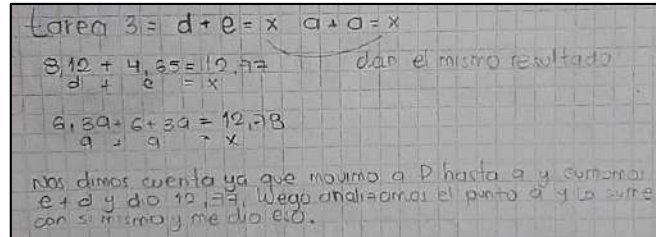 tarea 3 = d + e = x a + a = x
8,12 + 4,65 = 12,77 dan el mismo resultado
d + e = x
6,39 + 6,39 = 12,78
a + a = x
Nos dimos cuenta ya que movimo a D hasta a y sumamos
e + d y dio 12,77. Luego analizamos el punto a y lo sume
con si mismo y me dio eso.